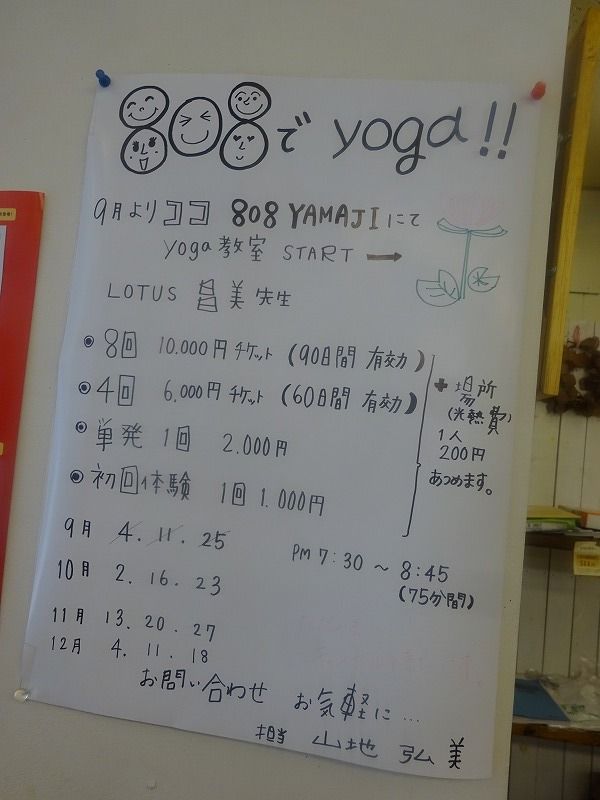 808で yoga!!
9月より ココ 808 YAMAJI にて
yoga 教室 START →
LOTUS 昌美 先生
● 8回 10.000円 チケット (90日間 有効)
● 4回 6.000円 チケット (60日間 有効)
● 単発 1回 2.000円
● 初回体験 1回 1.000円
+ 場所
(光熱費)
1人
200円
あつめます。
9月 4. 11. 25
10月 2. 16. 23
11月 13. 20. 27
12月 4. 11. 18
PM 7:30 ~ 8:45
(75分間)
お問い合わせ お気軽に…
担当 山地 弘美